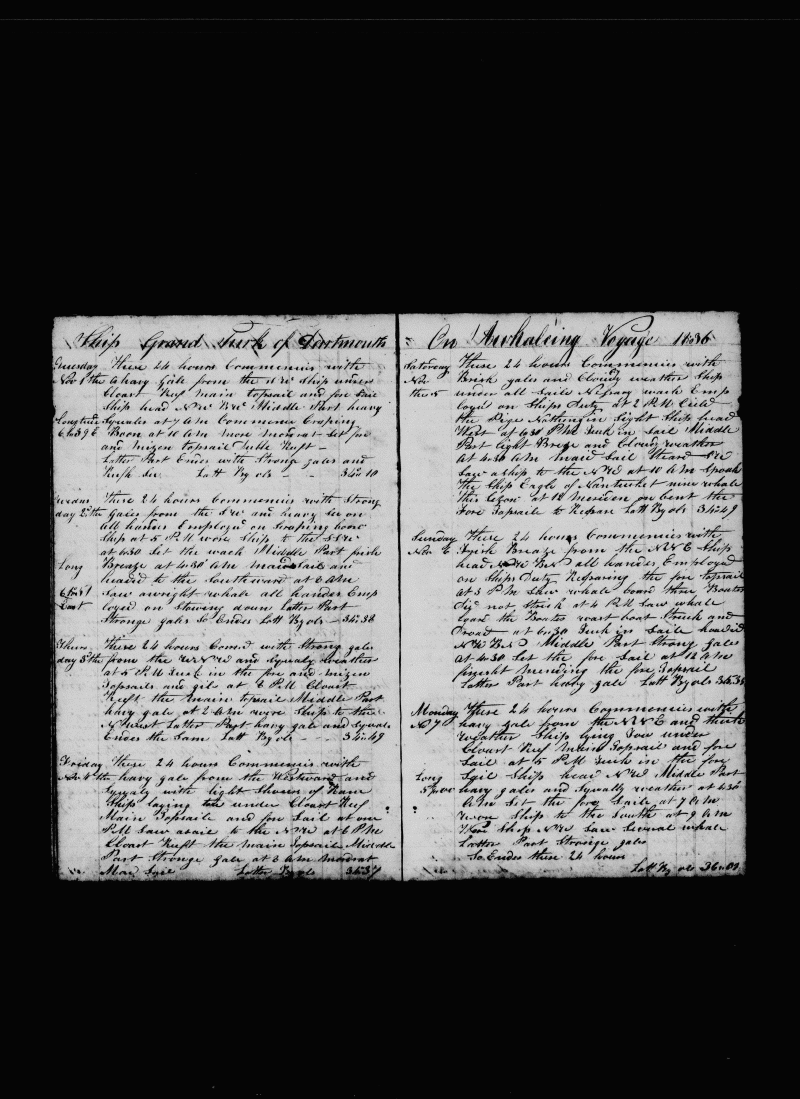 Ship Grand Turk of Dartmouth
Tuesday These 24 hours Commencies with
Nov 1 the a havy Gale from the Ship under
Cloast Reef main topsail and fore sail
Ship head Middle Part heavy
Longitude Squales at 7 AM Commence Craping
6 Boon at 10 AM more Set fore
and mizen topsail Duble Reeft
Latter Part Ends with Strong gales and
Latt By obs 34 10
Wednes These 24 hours Commencies with Strong
day 2 the Gales from the and heavy sea on
all hands Employed on Scraping bone
Ship at 5 P.M wore Ship to the
at 4:30 Set the wach Middle Part frish
Long Breaze at 4:30 AM maid Sail and
headed to the Southward at 6 AM
Saw a wright whale all handes Emp
East loyed on Stowing down Latter Part
Stronge gales So Endes Latt By obs 34 38
Thurs These 24 hours Comed with Strong gale
day 3 the from the and Squaly weather
at 5 P.M Took in the fore and mizen
Topsails and gib at 6 P.M Cloast
Reeft the main topsail Middle Part
havy gale at 2 AM wore Ship to the
N West Latter Part havy gale and Squals
Endes the Same Latt By obs 34 49
Friday These 24 hours Commencies with
Nov 4 the havy gale from the Westward and
Squaly with light Shours of Rane
Ship laying under Cloast Reef
Main Topsaile and fore Sail at one
P.M Saw a sail to the at 6 PM
Cloast Reeft the main Topsail Middle
Part Stronge gale at 3 AM Modrat
Maid Sail Latter By obs
On Awhaleing Voyage 1836
Saturday These 24 hours Commencies with
Nov Brisk gales and Cloudy weather Ship
the 5 under all Saile wach Emp
loyed on Ships Duty at 2 P.M
the Nothing in Sight Ship head
West at 4:30 PM Took in Sail Middle
Part light Breze and Cloudy weather
at 4:30 AM maid Sail Steard
Saw a ship to the at 10 AM Spoak
the Ship Eagle of Nantucket nine whale
this Seson at 12 Meredien on bent the
Fore Topsaile to Repare Latt By obs 34 49
Sunday These 24 hours Commencies with
Nov 6 Frish Breaze from the NNE Ship
head all handes Employed
on Ships Duty Reparing the fore topsail
at 3 P.M Saw whale Loard three Boates
Did not Strick at 4 P.M Saw whale
Loard the Boates wast boat Struck and
at 6:30 Took in Saile headed
Middle Part Strong gales
at 4:30 Set the fore Sail at 12 AM
finesht mending the fore Topsail
Latter Part havy gale Latt By obs
Monday These 24 hours Commencies with
No 7 havy gale from the NNE and thick
weather Ship lying Too under
Cloast Reef main Topsail and fore
Sail at 5 P.M Took in the fore
Long Sail Ship head Middle Part
havy gales and Squally weather at 4:30
AM Set the fore Saile at 7 AM
wore Ship to the South at 9 AM
Ship Saw Several whale
Latter Part Stronge gales
So Endes these 24 hours
Latt By obs 36 00